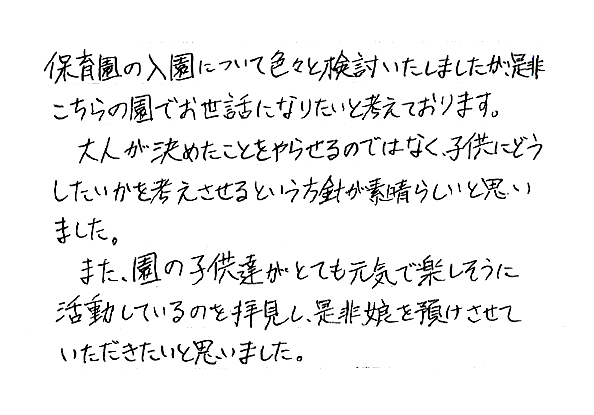 保育園の入園について色々と検討いたしましたが、是非
こちらの園でお世話になりたいと考えております。
大人が決めたことをやらせるのではなく、子供にどう
したいかを考えさせるという方針が素晴らしいと思い
ました。
また、園の子供達がとても元気で楽しそうに
活動しているのを拝見し、是非娘を預けさせて
いただきたいと思いました。